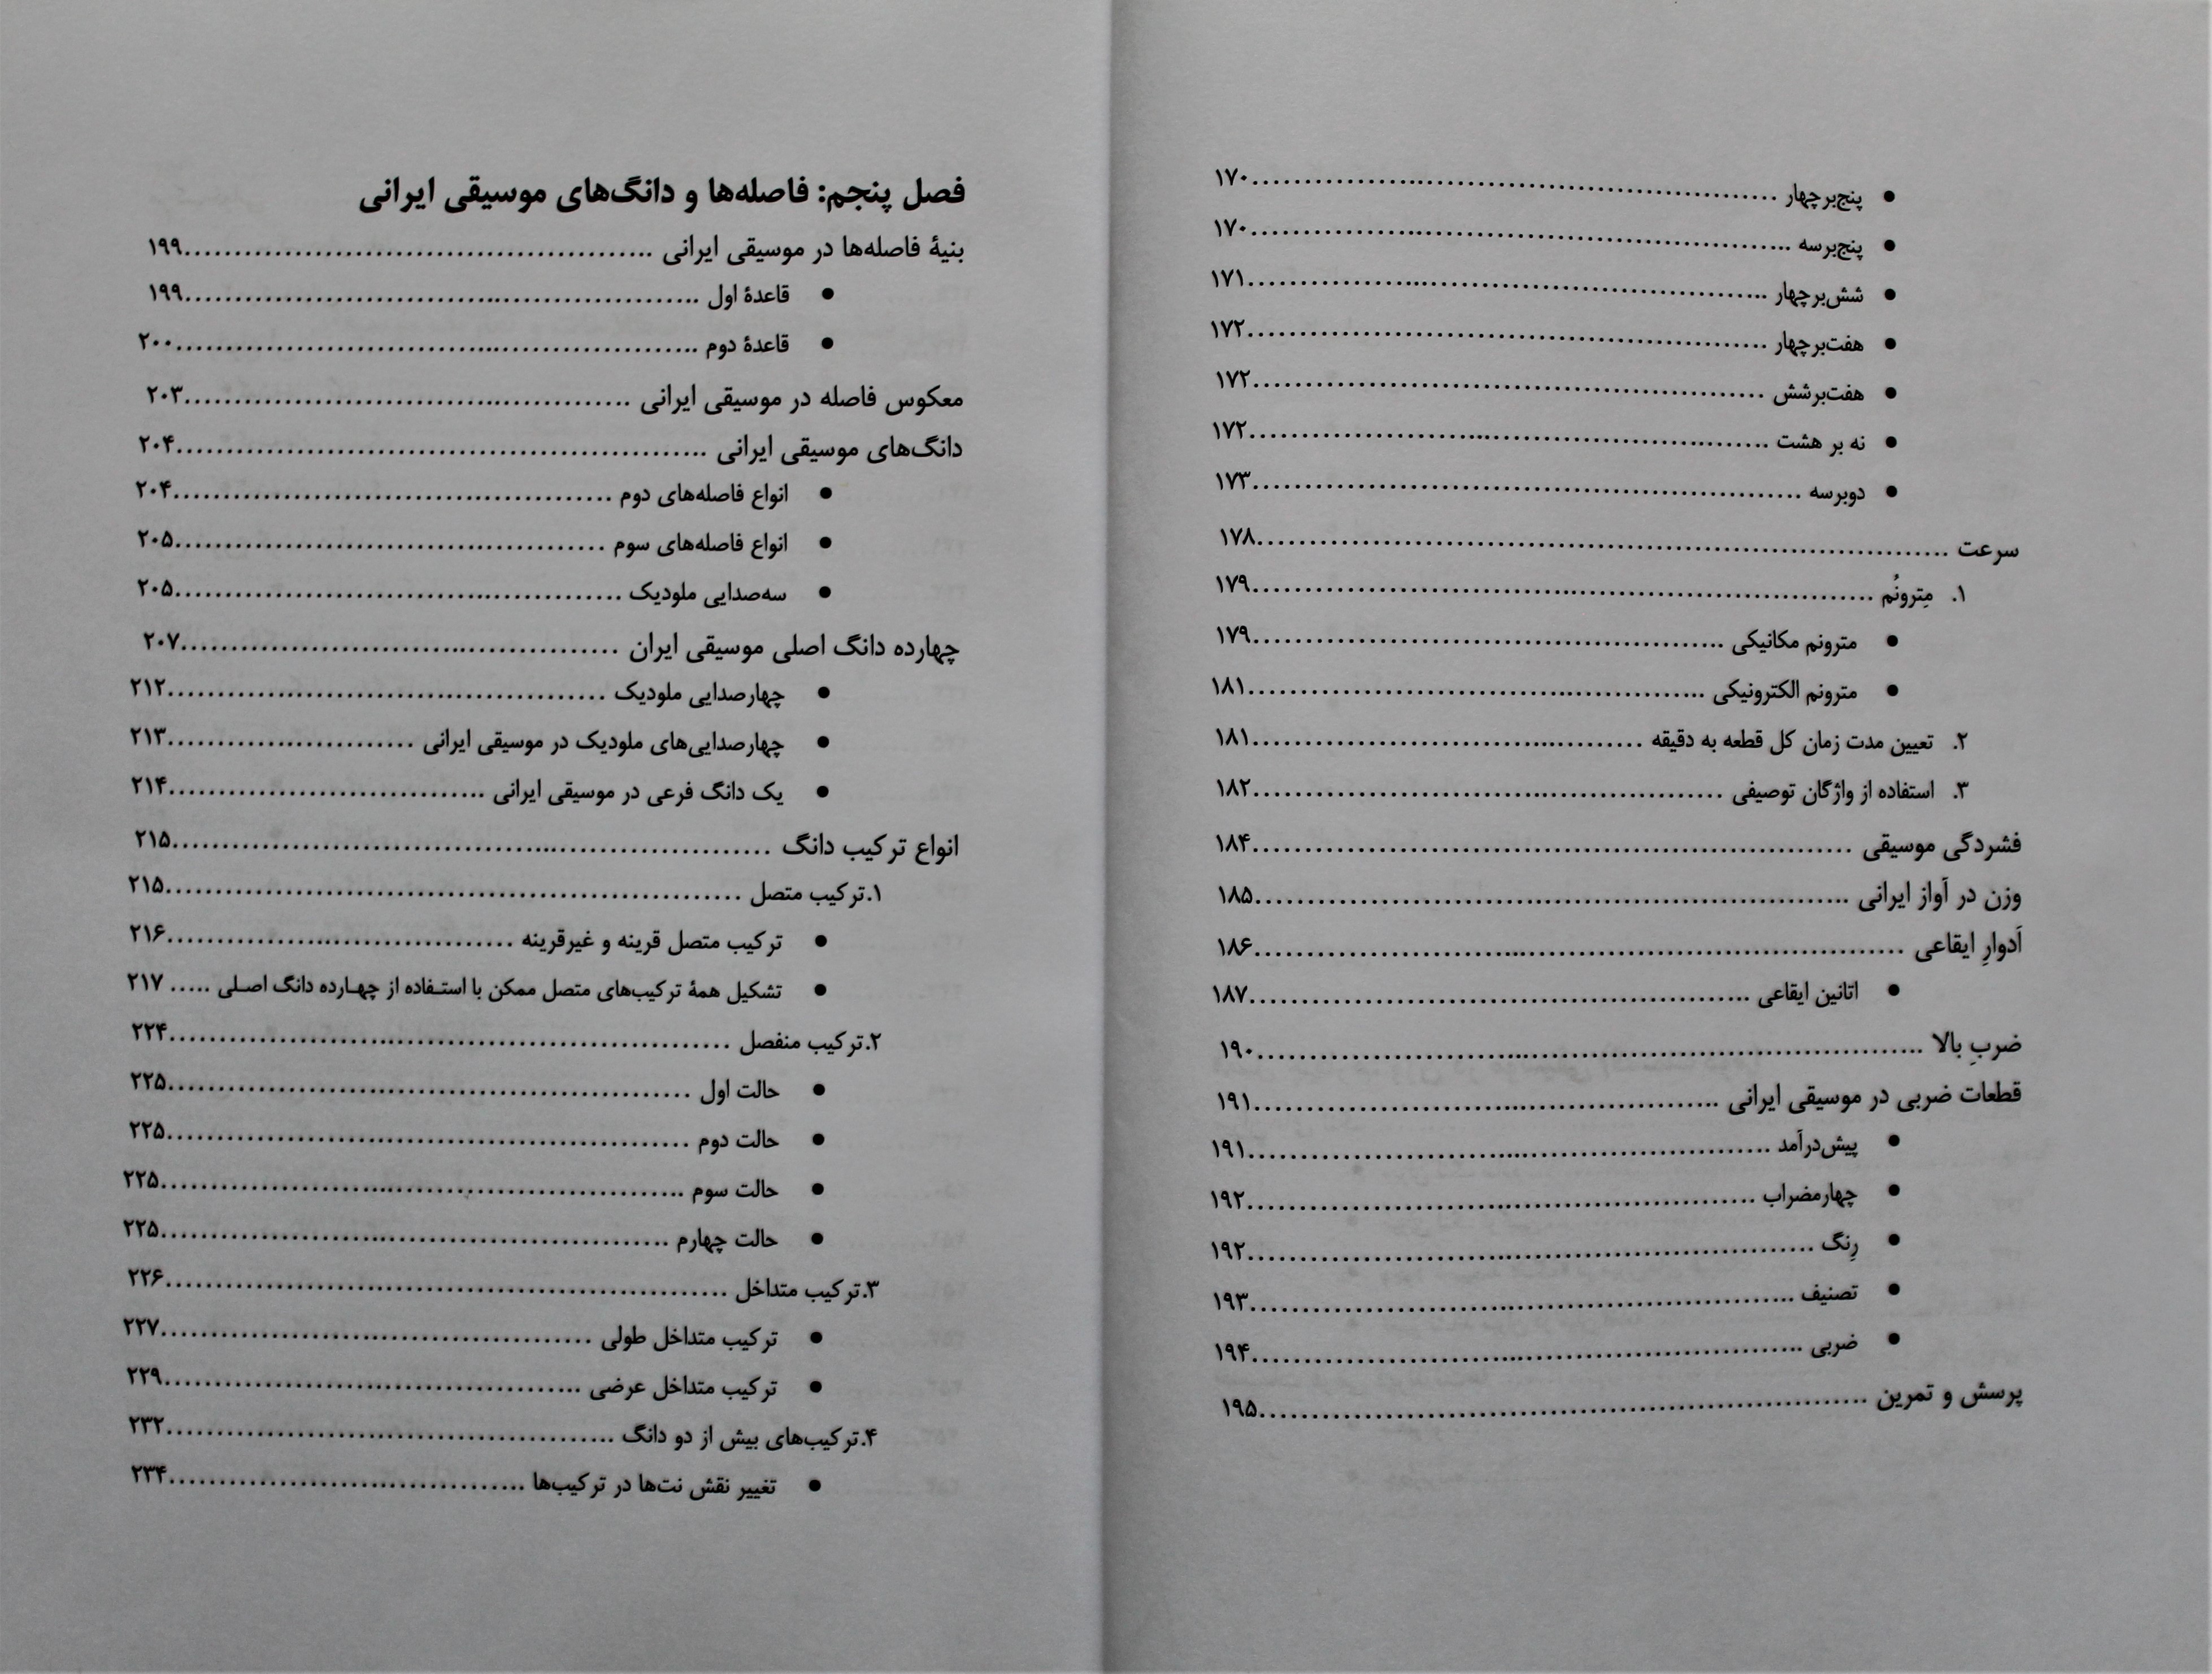 • پنج‌بر‌چهار ........ ۱۷۰
• پنج‌بر‌سه ........ ۱۷۰
• شش‌بر‌چهار ........ ۱۷۱
• هفت‌بر‌چهار ........ ۱۷۲
• هفت‌بر‌شش ........ ۱۷۲
• نه بر هشت ........ ۱۷۲
• دوبرسه ........ ۱۷۳
سرعت ........ ۱۷۸
۱. مِترونُم ........ ۱۷۹
• مترونم مکانیکی ........ ۱۷۹
• مترونم الکترونیکی ........ ۱۸۱
۲. تعیین مدت زمان کل قطعه به دقیقه ........ ۱۸۱
۳. استفاده از واژگان توصیفی ........ ۱۸۲
فشردگی موسیقی ........ ۱۸۴
وزن در آواز ایرانی ........ ۱۸۵
اَدوارِ ایقاعی ........ ۱۸۶
• اتانین ایقاعی ........ ۱۸۷
ضربِ بالا ........ ۱۹۰
قطعات ضربی در موسیقی ایرانی ........ ۱۹۱
• پیش‌درآمد ........ ۱۹۱
• چهارمضراب ........ ۱۹۲
• رِنگ ........ ۱۹۲
• تصنیف ........ ۱۹۳
• ضربی ........ ۱۹۴
پرسش و تمرین ........ ۱۹۵
فصل پنجم: فاصله‌ها و دانگ‌های موسیقی ایرانی
بنیهٔ فاصله‌ها در موسیقی ایرانی ........ ۱۹۹
• قاعدهٔ اول ........ ۱۹۹
• قاعدهٔ دوم ........ ۲۰۰
معکوس فاصله در موسیقی ایرانی ........ ۲۰۳
دانگ‌های موسیقی ایرانی ........ ۲۰۴
• انواع فاصله‌های دوم ........ ۲۰۴
• انواع فاصله‌های سوم ........ ۲۰۵
• سه‌صدایی ملودیک ........ ۲۰۵
چهارده دانگ اصلی موسیقی ایران ........ ۲۰۷
• چهارصدایی ملودیک ........ ۲۱۲
• چهارصدایی‌های ملودیک در موسیقی ایرانی ........ ۲۱۳
• یک دانگ فرعی در موسیقی ایرانی ........ ۲۱۴
انواع ترکیب دانگ ........ ۲۱۵
۱.ترکیب متصل ........ ۲۱۵
• ترکیب متصل قرینه و غیرقرینه ........ ۲۱۶
• تشکیل همهٔ ترکیب‌های متصل ممکن با استفاده از چهارده دانگ اصلی ..... ۲۱۷
۲.ترکیب منفصل ........ ۲۲۴
• حالت اول ........ ۲۲۵
• حالت دوم ........ ۲۲۵
• حالت سوم ........ ۲۲۵
• حالت چهارم ........ ۲۲۵
۳.ترکیب متداخل ........ ۲۲۶
• ترکیب متداخل طولی ........ ۲۲۷
• ترکیب متداخل عرضی ........ ۲۲۹
۴.ترکیب‌های بیش از دو دانگ ........ ۲۳۲
• تغییر نقش نت‌ها در ترکیب‌ها ........ ۲۳۴